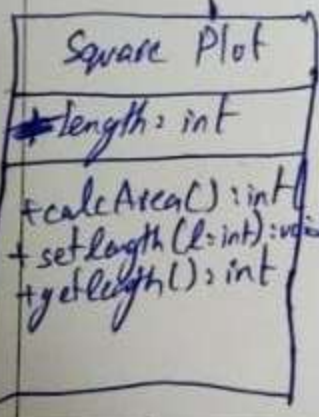 Square Plot
length: int
+calcArea(): int
+ setlength(l: int): void
+getlength(): int